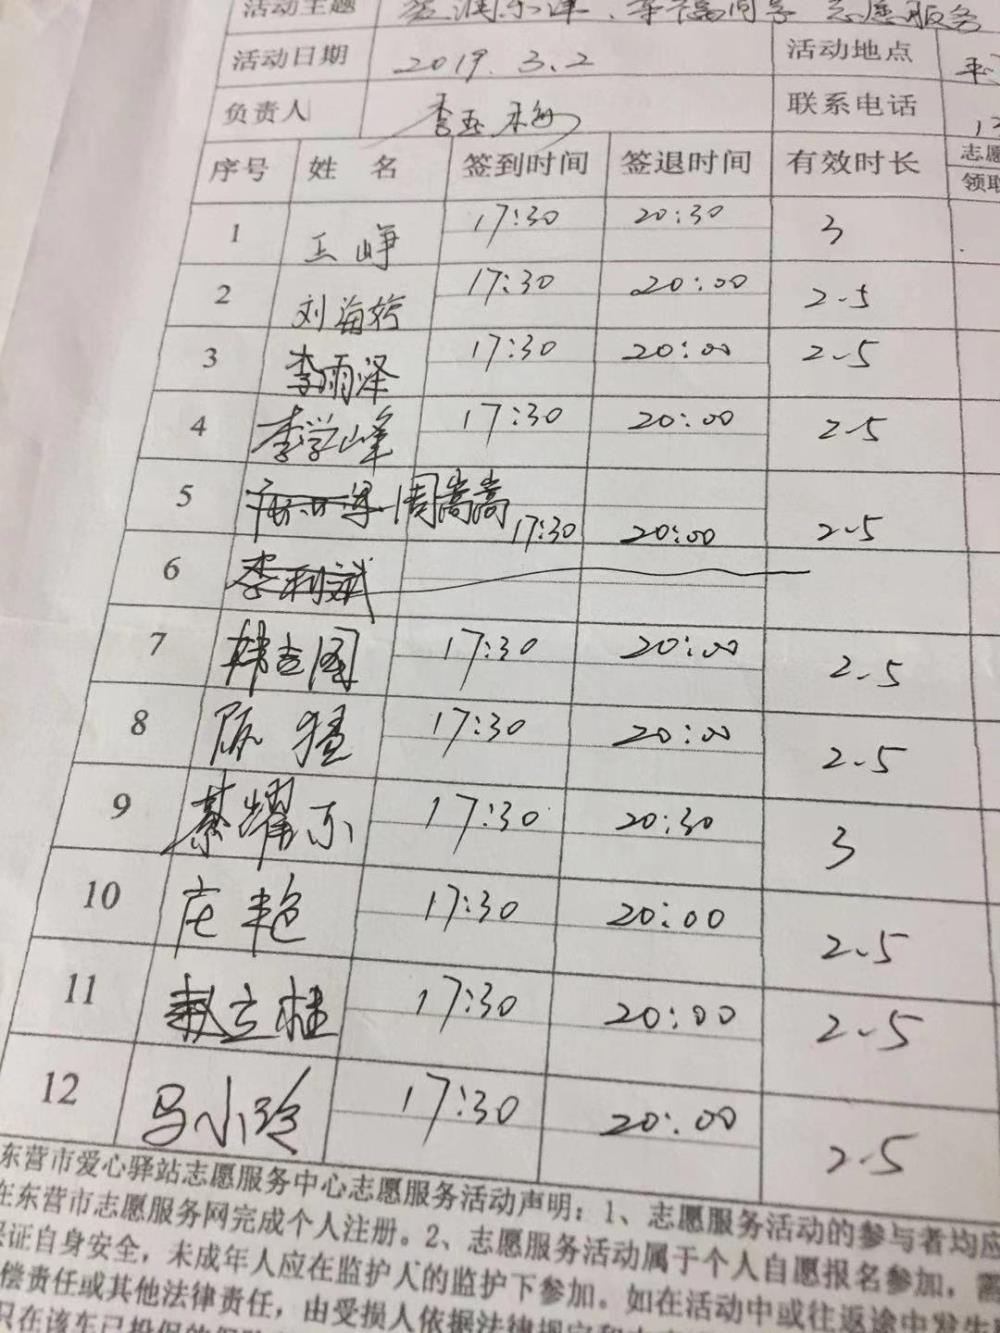 活动主题 志愿服务
活动日期 2019.3.2 活动地点
负责人 联系电话
序号 姓 名 签到时间 签退时间 有效时长 志愿
领取
1 王峥 17:30 20:30 3
2 刘海婷 17:30 20:00 2.5
3 李雨泽 17:30 20:00 2.5
4 李学峰 17:30 20:00 2.5
5 周嵩嵩 17:30 20:00 2.5
6 李利斌
7 韩志国 17:30 20:00 2.5
8 陈猛 17:30 20:00 2.5
9 綦耀东 17:30 20:30 3
10 庄艳 17:30 20:00 2.5
11 赵立柱 17:30 20:00 2.5
12 马小玲 17:30 20:00 2.5
东营市爱心驿站志愿服务中心志愿服务活动声明：1、志愿服务活动的参与者均应
在东营市志愿服务网完成个人注册。2、志愿服务活动属于个人自愿报名参加，需
证自身安全，未成年人应在监护人的监护下参加。如在活动中或往返途中发生
偿责任或其他法律责任，由受损人依据法律规定和
只在该车已投保的保险